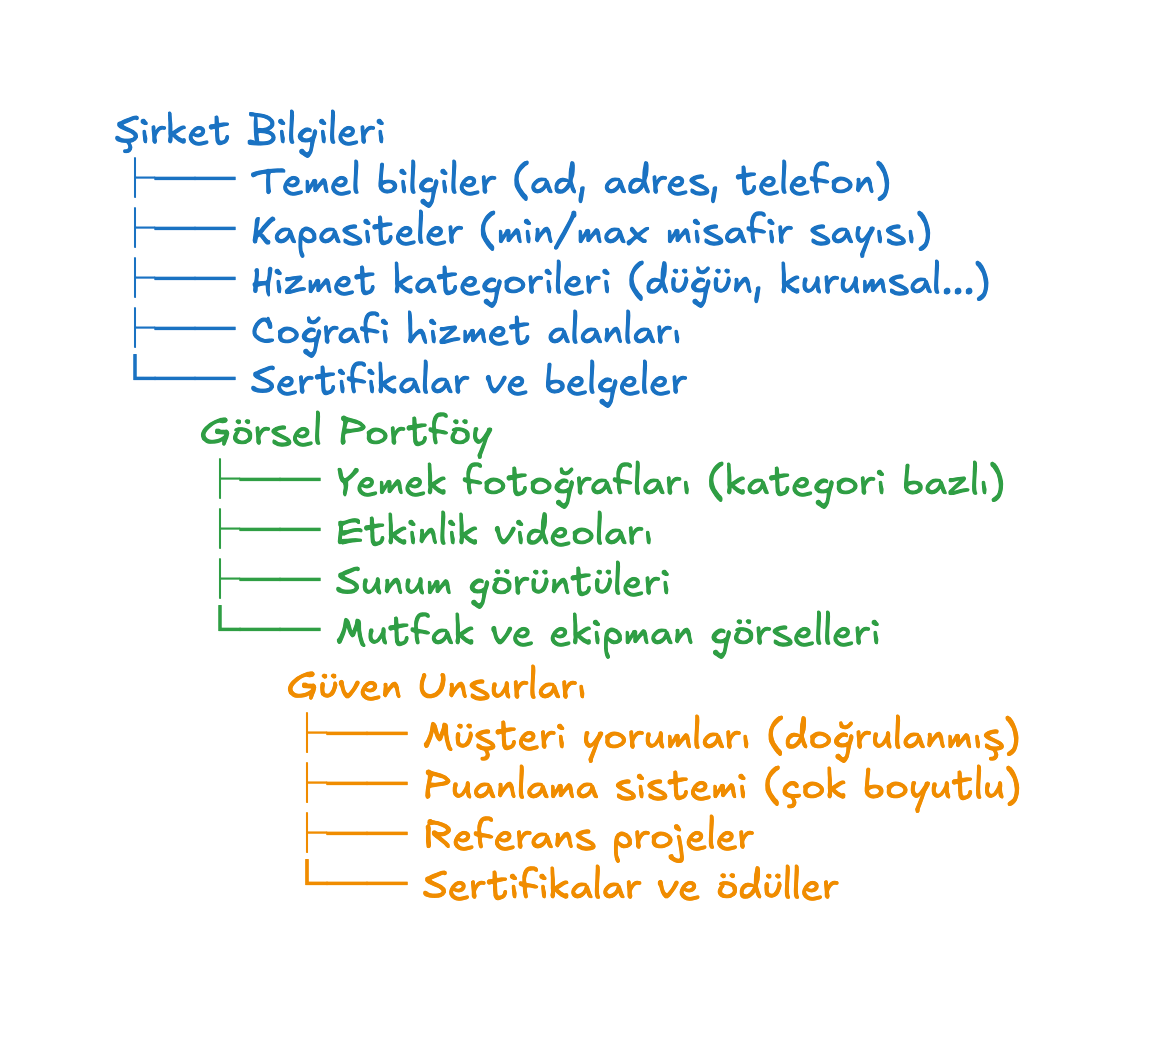 Şirket Bilgileri
Temel bilgiler (ad, adres, telefon)
Kapasiteler (min/max misafir sayısı)
Hizmet kategorileri (düğün, kurumsal...)
Coğrafi hizmet alanları
Sertifikalar ve belgeler
Görsel Portföy
Yemek fotoğrafları (kategori bazlı)
Etkinlik videoları
Sunum görüntüleri
Mutfak ve ekipman görselleri
Güven Unsurları
Müşteri yorumları (doğrulanmış)
Puanlama sistemi (çok boyutlu)
Referans projeler
Sertifikalar ve ödüller